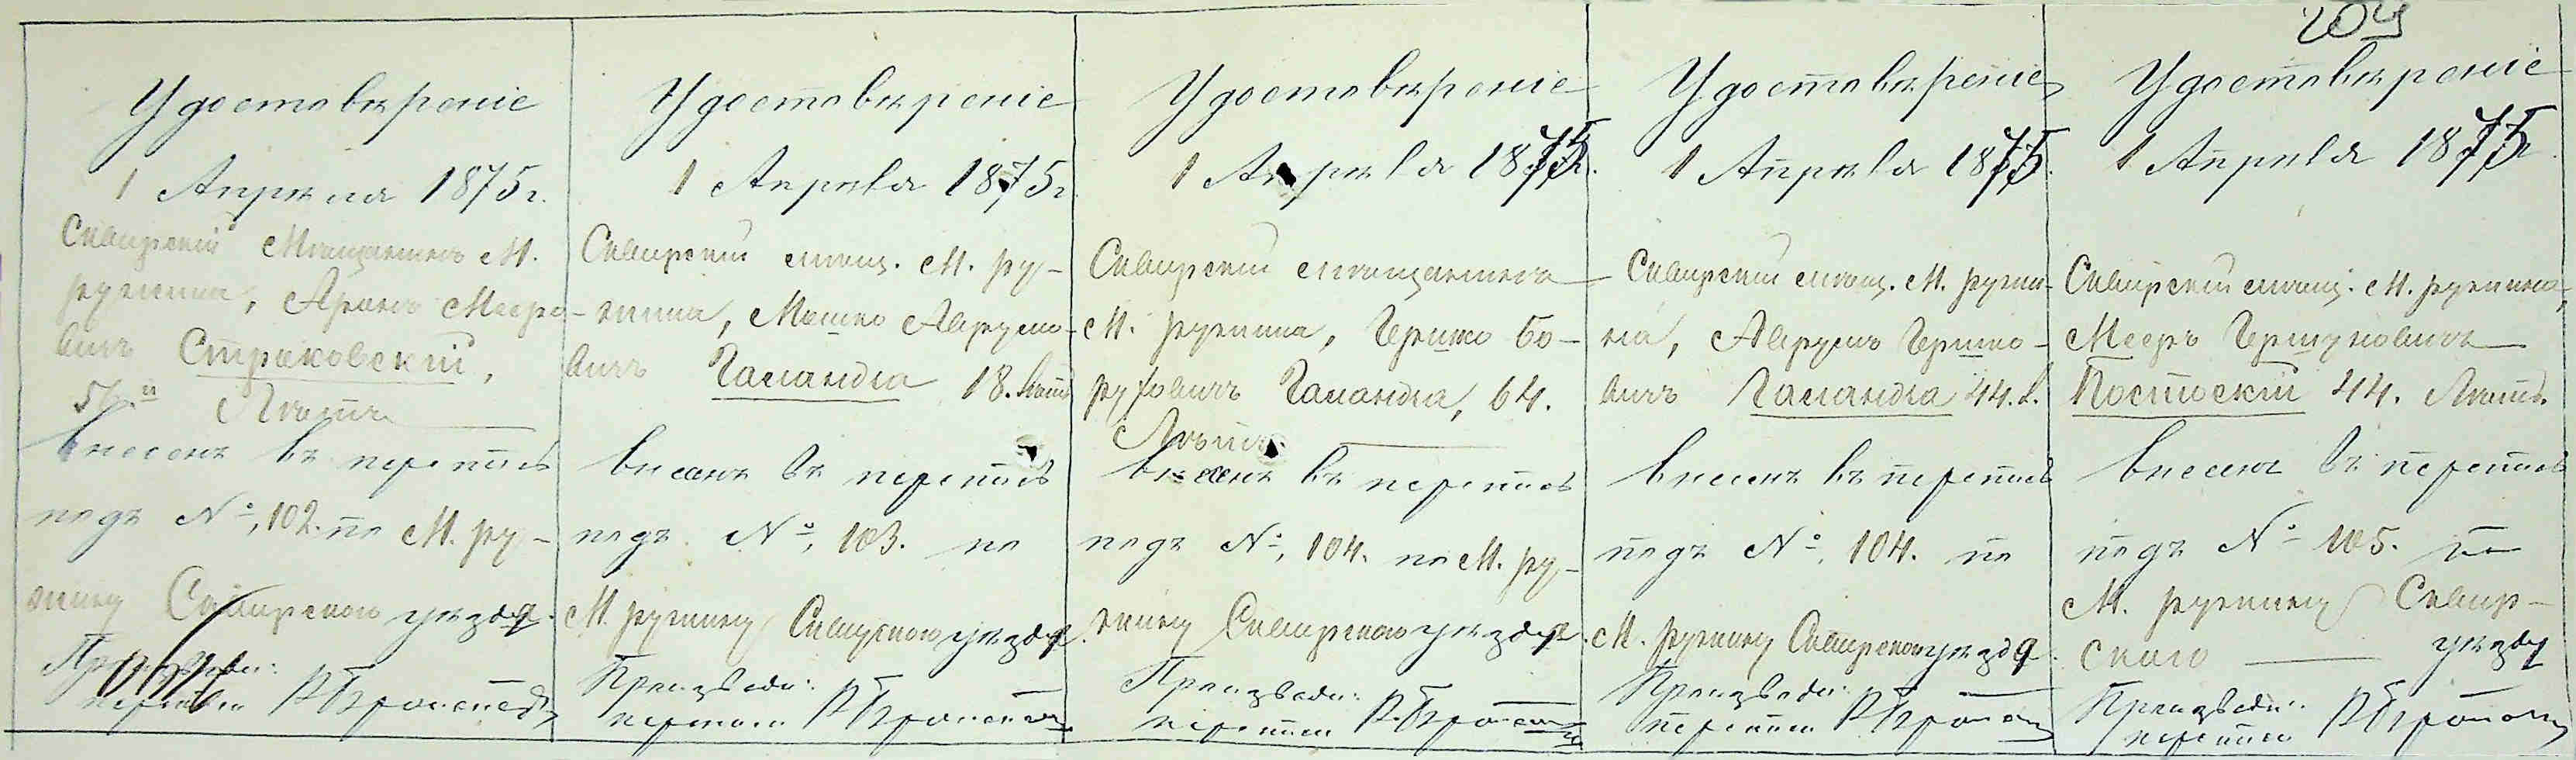 204
Удостовѣреніе
1 Апрѣля 1875г.
Сквирскій Мѣщанинъ М.
Ружина, Аронъ Мееро-
вичъ Страковскій,
Лѣтъ
внесенъ въ перепись
подъ №, 102. по М. Ру-
жину Сквирскаго уѣзда.
Производи:
перепись
Удостовѣреніе
1 Апрѣля 1875г
Сквирскій мѣщ. М. Ру-
жина, Мошко Аврумо-
вичъ Галандза 18. лѣтъ
внесенъ въ перепись
подъ №, 103. по
М. Ружину Сквирскаго уѣзда.
Производи:
перепись
Удостовѣреніе
1 Апрѣля 1875г.
Сквирскій мѣщанинъ
М. Ружина, Гершко Бо-
руховичъ Галандза, 64.
Лѣтъ
внесенъ въ перепись
подъ №, 104. по М. Ру-
жину Сквирскаго уѣзда.
Производи:
перепись
Удостовѣреніе
1 Апрѣля 1875.
Сквирскій мѣщ. М. Ружи-
на, Аврумъ Гершко-
вичъ Галандза 44. л.
внесенъ въ перепись
подъ №, 104. по
М. Ружину Сквирскаго уѣзда.
Производи:
перепись
Удостовѣреніе
1 Апрѣля 1875г.
Сквирскій мѣщ. М. Ружина,
Мееръ Гершуновичъ
Постоскій 44. Лѣтъ.
внесенъ въ перепись
подъ № 105. по
М. Ружину Сквир-
скаго уѣзду
Производи:
перепись